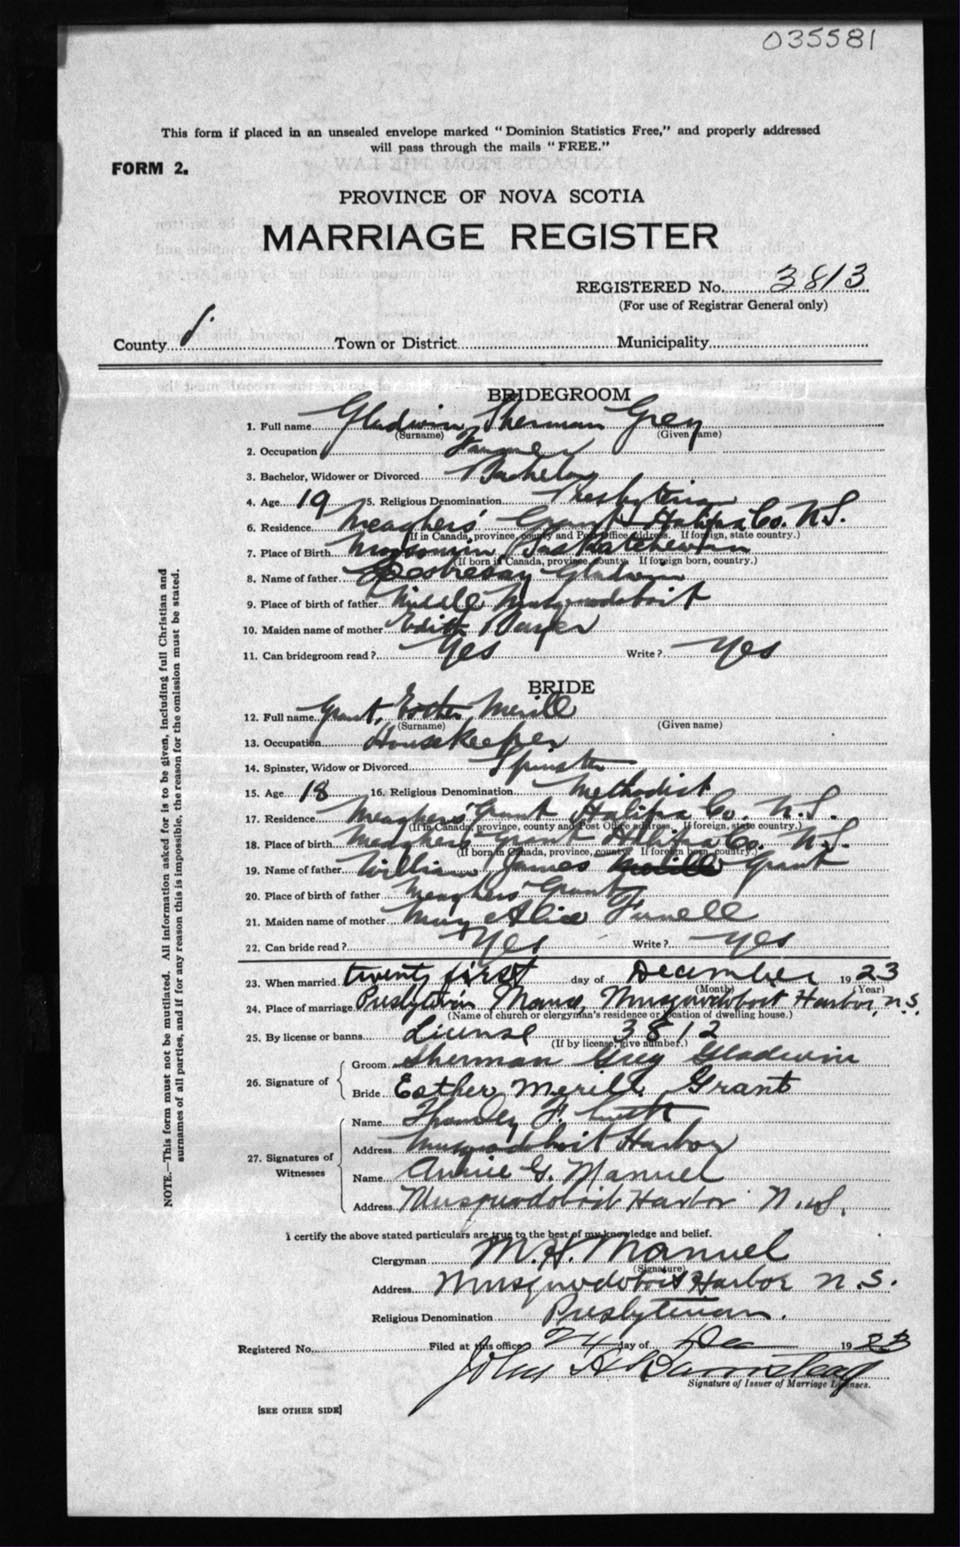 035581
This form if placed in an unsealed envelope marked "Dominion Statistics Free," and properly addressed
will pass through the mails "FREE."
FORM 2.
PROVINCE OF NOVA SCOTIA
MARRIAGE REGISTER
REGISTERED No. 3813
(For use of Registrar General only)
County Town or District Municipality
BRIDEGROOM
1. Full name Gladwin, Sherman Grey
(Surname) (Given name)
2. Occupation Farmer
3. Bachelor, Widower or Divorced Bachelor
4. Age 19 5. Religious Denomination Presbyterian
6. Residence Meaghers' Grant Halifax Co. N.S.
(If in Canada, province, county and Post Office address. If foreign, state country.)
7. Place of Birth Moosomin Saskatchewan
(If born in Canada, province, county. If foreign born, country.)
8. Name of father Gladwin
9. Place of birth of father Middle Musquodoboit
10. Maiden name of mother Edith
11. Can bridegroom read? Yes Write? Yes
BRIDE
12. Full name Grant, Esther Merill
(Surname) (Given name)
13. Occupation Housekeeper
14. Spinster, Widow or Divorced Spinster
15. Age 18 16. Religious Denomination Methodist
17. Residence Meaghers' Grant Halifax Co. N.S.
(If in Canada, province, county and Post Office address. If foreign, state country.)
18. Place of birth Meaghers' Grant Halifax Co. N.S.
(If born in Canada, province, county. If foreign born, country.)
19. Name of father William James Grant
20. Place of birth of father Meaghers' Grant
21. Maiden name of mother Mary Alice
22. Can bride read? Yes Write? Yes
23. When married twenty first day of December 1923
(Month) (Year)
24. Place of marriage Presbyterian Manse, Musquodoboit Harbor, N.S.
(Name of church or clergyman's residence or location of dwelling house.)
25. By license or banns License 3812
(If by license, give number.)
26. Signature of
Groom Sherman Grey Gladwin
Bride Esther Merill Grant
27. Signatures of Witnesses
Name
Address Musquodoboit Harbor
Name Annie G. Manuel
Address Musquodoboit Harbor N.S.
I certify the above stated particulars are true to the best of my knowledge and belief.
Clergyman M. H. Manuel
(Signature)
Address Musquodoboit Harbor N.S.
Religious Denomination Presbyterian.
Registered No. Filed at this office 24 day of Dec 1923
John A
Signature of Issuer of Marriage Licenses.
[SEE OTHER SIDE]
NOTE.—This form must not be mutilated. All information asked for is to be given, including full Christian and
surnames of all parties, and if for any reason this is impossible, the reason for the omission must be stated.